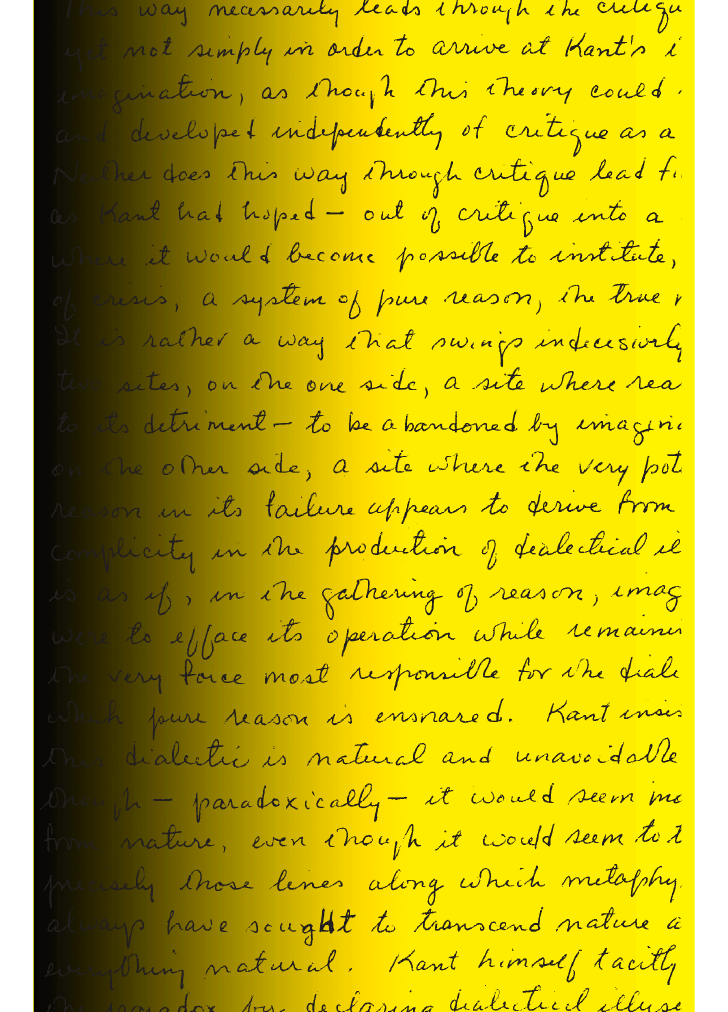 This way necessarily leads through the critiqu
yet not simply in order to arrive at Kant's i
imagination, as though this theory could
and developed independently of critique as a
Neither does this way through critique lead f
as Kant had hoped — out of critique into a
where it would become possible to institute,
of crisis, a system of pure reason, the true
It is rather a way that swings indecisively
two sites, on the one side, a site where rea
to its detriment — to be abandoned by imagin
on the other side, a site where the very pot
reason in its failure appears to derive from
complicity in the production of dialectical il
is as if, in the gathering of reason, imag
were to efface its operation while remainin
the very force most responsible for the diale
which pure reason is ensnared. Kant insis
this dialectic is natural and unavoidable
though — paradoxically — it would seem mo
from nature, even though it would seem to t
precisely those lines along which metaphy
always have sought to transcend nature a
everything natural. Kant himself tacitly
the paradox by declaring dialectical illusi